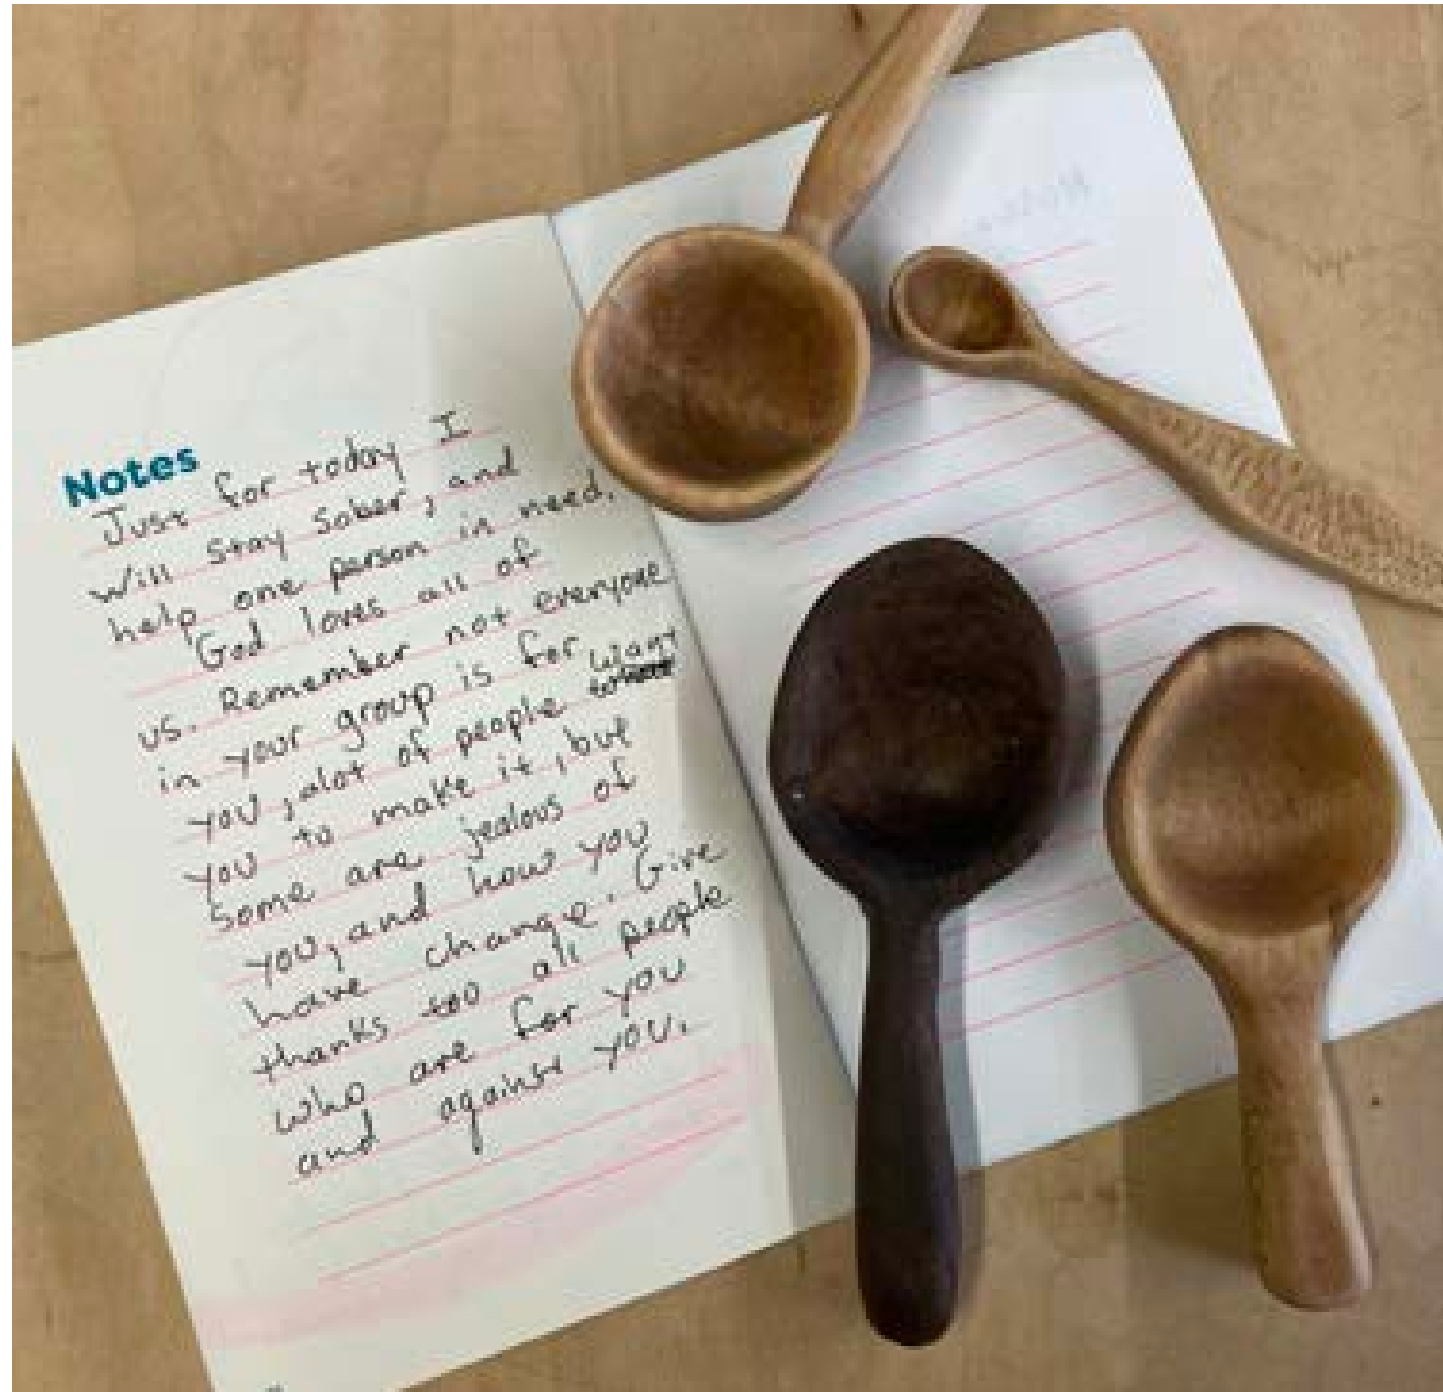 Notes
Just for today I
will stay sober, and
help one person in need.
God loves all of
us. Remember not everyone
in your group is for
you, alot of people want
you to make it, but
some are jealous of
you, and how you
have change. Give
thanks too all people
who are for you
and against you.